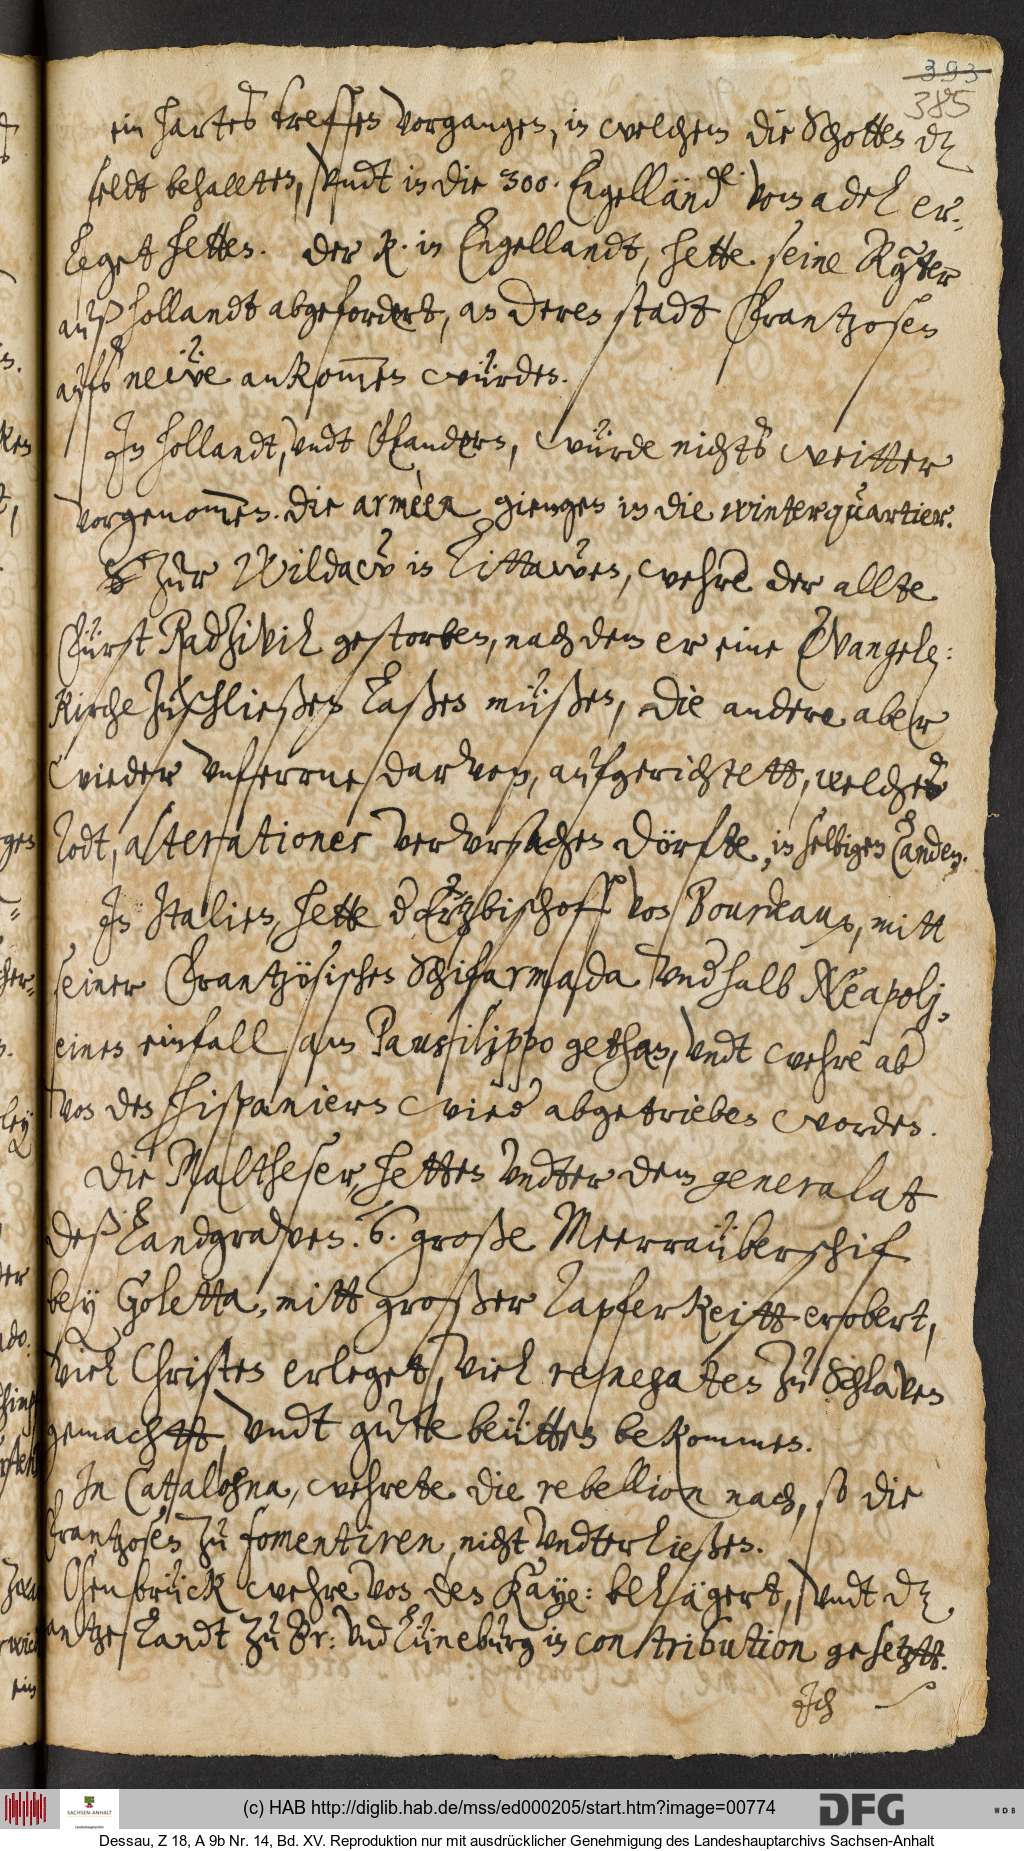 393
385
ein hartes treffen vorgangen, in welchem die Schotten dz
feldt behalten, vndt in die 300. Engelländ. vom adel er-
leget hetten. Der K. in Engellandt, hette seine Ryter
auß hollandt abgefordert, an deren stadt Frantzosen
aufs neẅe ankom̅en würden.
In hollandt, vndt Flandern, würde nichts weitter
vorgenom̅en. Die armèèn giengen in die winterquartier.
Zur Wildaw in Littawen, wehre der allte
Fürst Radzivil gestorben, nach dem er eine Evangele:
Kirche zuschließen laßen müßen, die andere aber
wieder vnferrne darvon, aufgerichtett, welches
todt, alterationes verursachen dörfte, in selbigen landen.
In Italien, hette d Ertzbischoff von Bourdeaux, mitt
seiner Frantzösischen Schifarmada vnd halb Neapolj,
einen einfall am Pausilippo gethan, vndt wehre ab
von den hispaniern wied abgetrieben worden.
Die Maltheser, hetten vndter dem generalat
deß Landgraven. 6. große Meerraüberschif
bey Goletta, mitt großer tapferkeitt erobert,
viel Christen erleget, viel renegaten zu Schlaven
gemachtt, vndt gute beütten bekommen.
In Cattalogna, wehrete die rebellion nach, so die
Frantzosen zu fomentiren, nicht vndterließen.
Osenbrück wehre von den Kaye: belägert, vndt dz
antze landt zu Br: vnd Lüneburg in contribution gesetztt.
Ich
(c) HAB http://diglib.hab.de/mss/ed000205/start.htm?image=00774
SACHSEN-ANHALT
DFG
WDB
Dessau, Z 18, A 9b Nr. 14, Bd. XV. Reproduktion nur mit ausdrücklicher Genehmigung des Landeshauptarchivs Sachsen-Anhalt